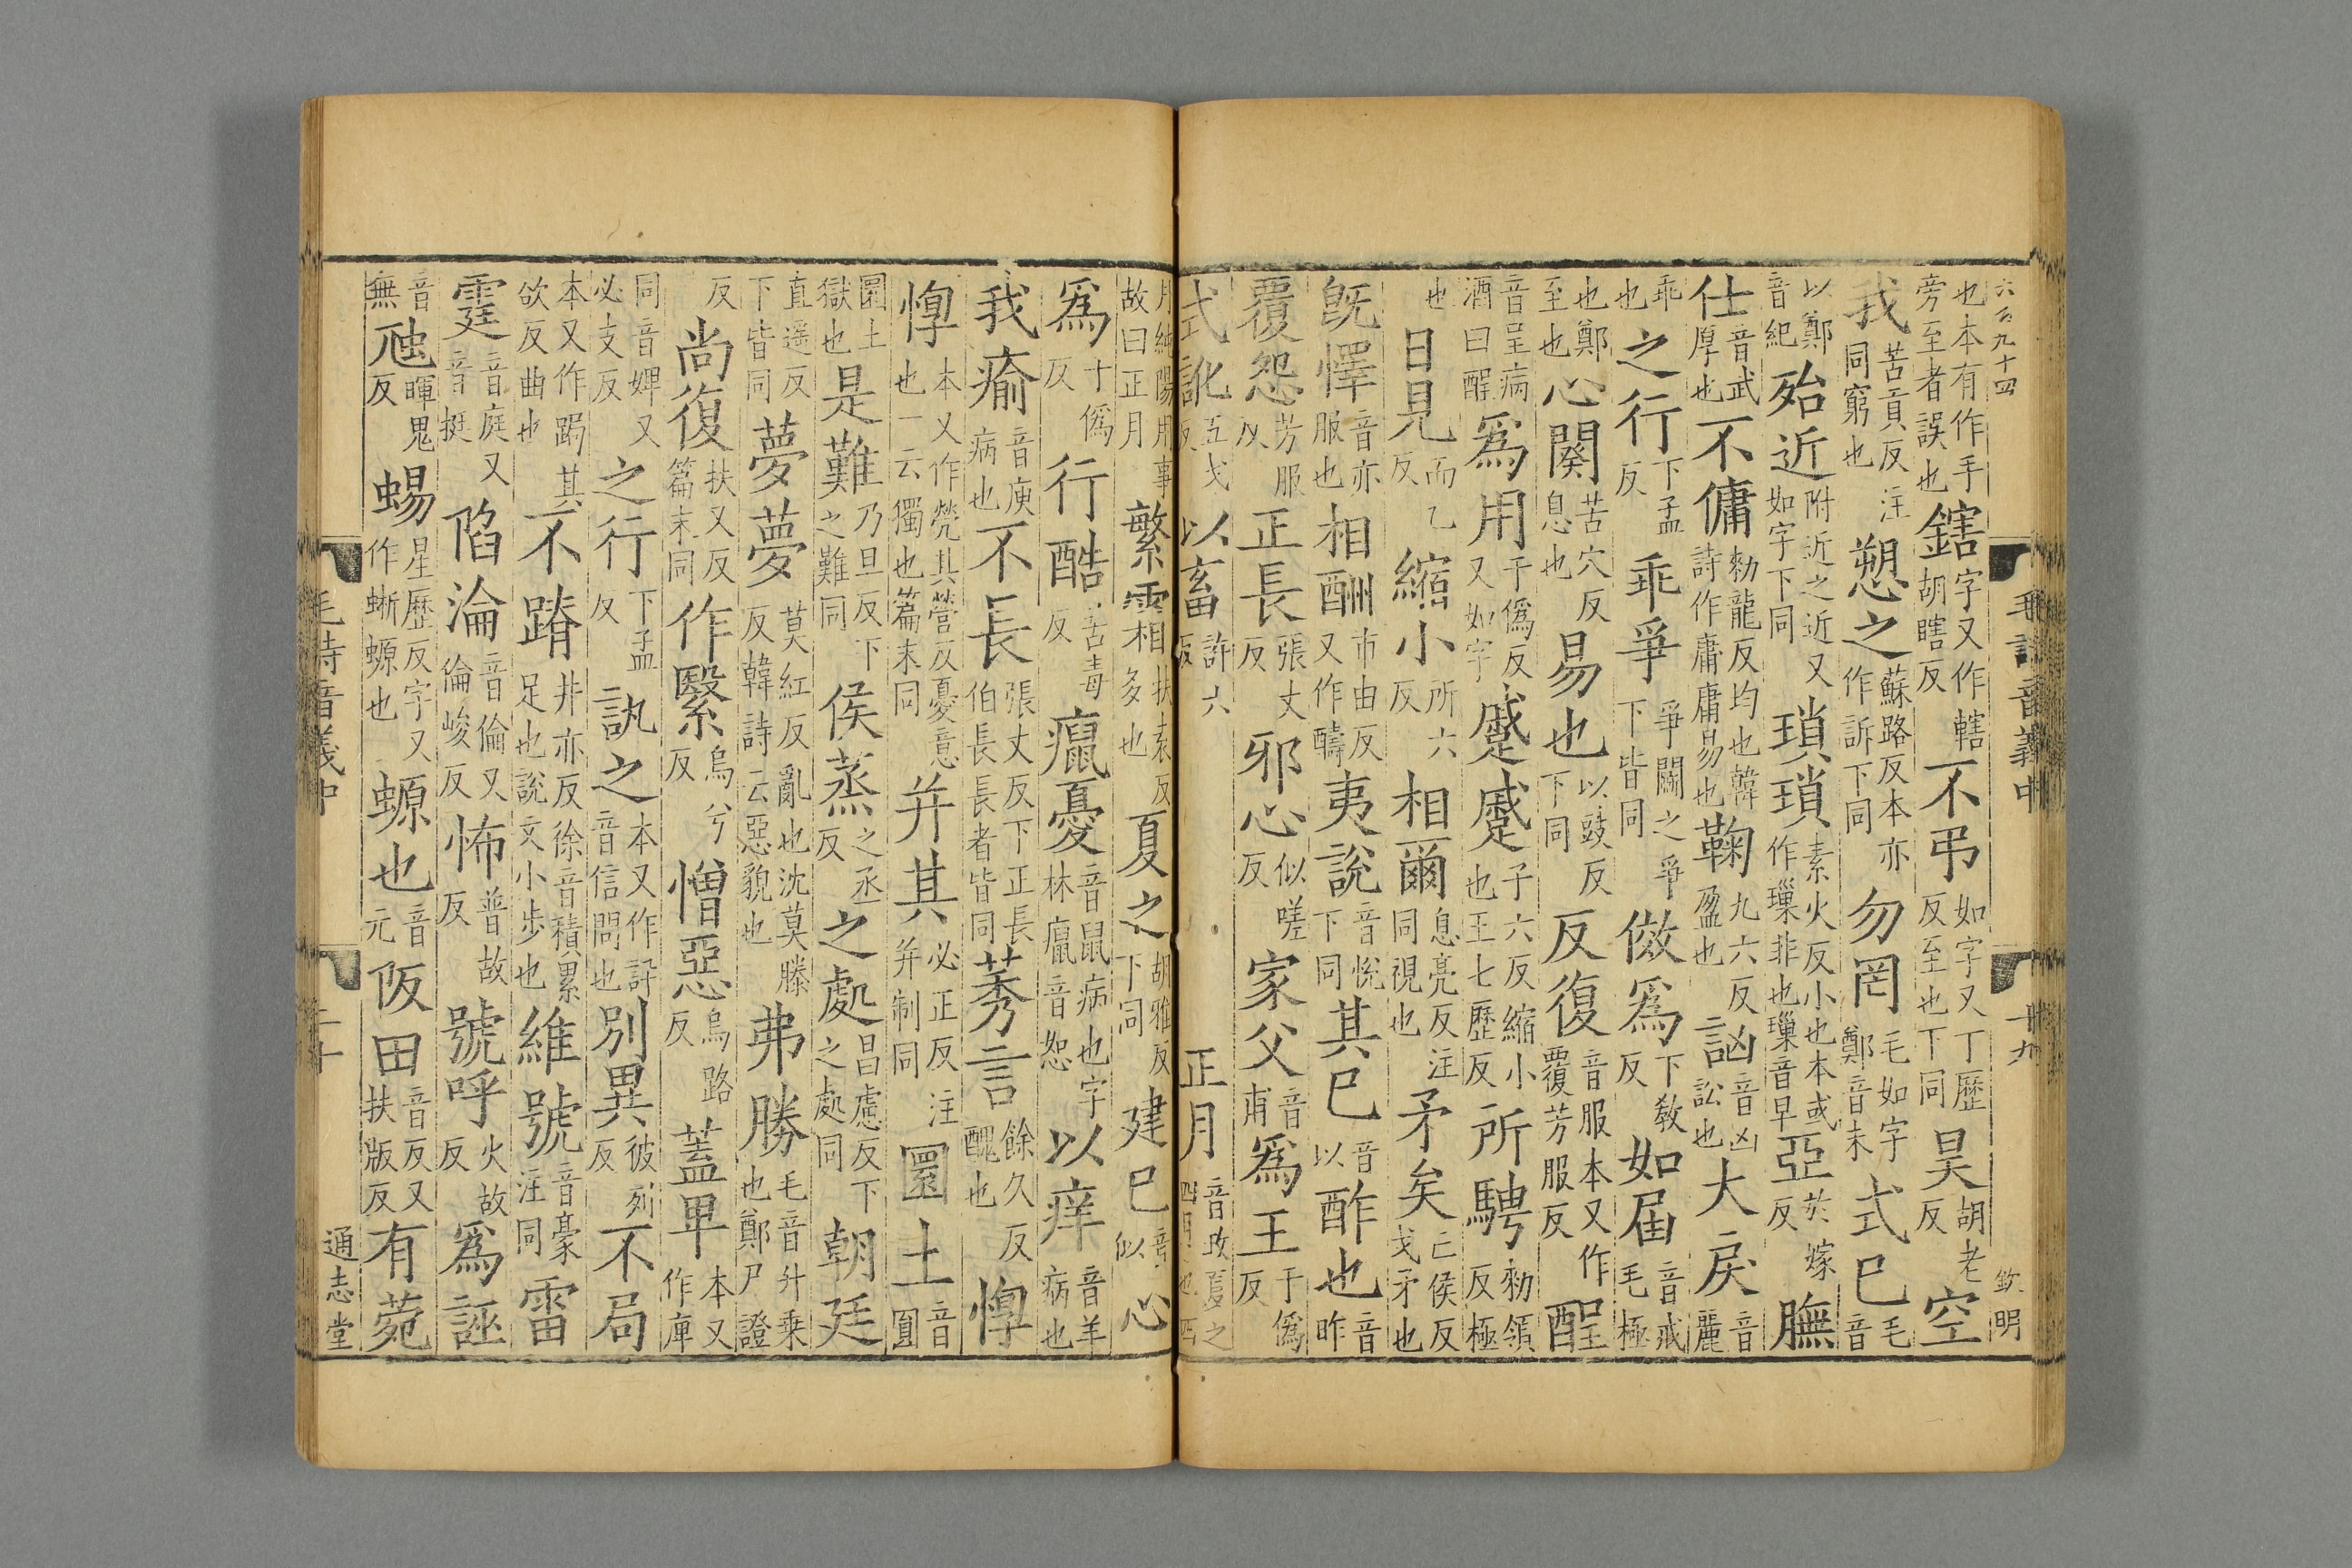 六百九十四 毛詩音義中 廿九 欽明
也本有作手旁至者誤也鎋字又作轄胡瞎反不弔如字又丁歷反至也下同昊胡老反空
我苦貢反注同窮也愬之蘇路反本亦作訴下同勿罔毛如字鄭音末式已毛音
以鄭音紀殆近附近之近又如字下同瑣瑣素火反小也本或作璅非也璅音早亞於嫁反膴
仕音武厚也不傭勑龍反均也韓詩作庸庸易也鞠九六反盈也訩音凶訟也大戾音麗
乖也之行下孟反乖爭爭鬭之爭下皆同倣爲下敎反如届音戒毛極
也鄭至也心闋苦穴反息也易也以豉反下同反復音服本又作覆芳服反酲
音呈病酒曰酲爲用于僞反又如字蹙蹙子六反縮小也王七歷反所騁勑領反極
也日見而乙反縮小所六反相爾息亮反注同視也矛矣亡侯反戈矛也
旣懌音亦服也相酬市由反又作醻夷說音悅下同其已音以酢也音昨
覆怨芳服反正長張丈反邪心似嗟反家父音甫爲王于僞反
式訛五戈反以畜許六反正月音政夏之四月也四
月純陽用事故曰正月繁霜扶袁反多也夏之胡雅反下同建巳音似心
爲于僞反行酷苦毒反癙憂音鼠病也字林癙音恕以痒音羊病也
我瘉音庾病也不長張丈反下正長伯長長者皆同莠言餘久反醜也惸
惸本又作煢其營反憂意也一云獨也篇末同并其必正反注并制同圜土音圓
圜土獄也是難乃旦反下之難同侯蒸之丞反之處昌慮反下之處同朝廷
直遥反下皆同夢夢莫紅反亂也沈莫滕反韓詩云惡貌也弗勝毛音升乗也鄭尸證
反尚復扶又反篇末同作繄烏兮反憎惡烏路反蓋卑本又作庳
同音婢又必支反之行下孟反訊之本又作訊音信問也別異彼列反不局
本又作跼其欲反曲也不蹐井亦反徐音積累足也說文小步也維號音豪注同雷
霆音庭又音挺陷淪音倫又倫峻反怖普故反號呼火故反爲誣
音無虺暉鬼反蜴星歷反字又作蜥螈也螈也音元阪田音反又扶版反有菀
毛詩音義中 二十 通志堂